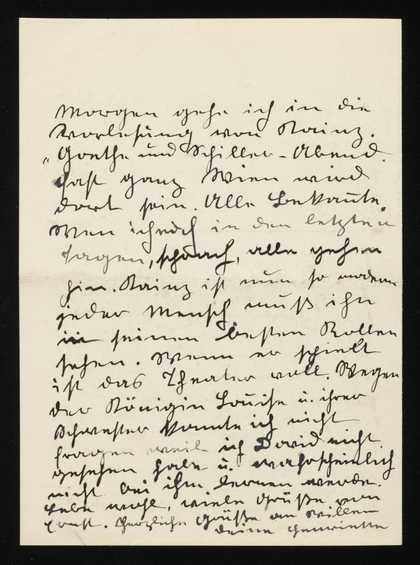 Morgen gehe ich in die
Vorlesung von Kainz.
„Goethe und Schiller-Abend.
Fast ganz Wien wird
dort sein. Alle Bekannte.
Wen ich noch in den letzten
Tagen sprach, alle gehen
hin. Kainz ist nun so modern
jeder Mensch muß ihn
in seinen besten Rollen
sehen. Wenn er spielt
ist das Theater voll. Wegen
der Königin Louise u. ihrer
Schwester konnte ich nicht
fragen weil ich David nicht
gesehen habe u. wahrscheinlich
nicht bei ihm lernen werde.
Lebe wohl, viele Grüße von
Ernst. Herzliche Grüße an Willem
Deine Henriette